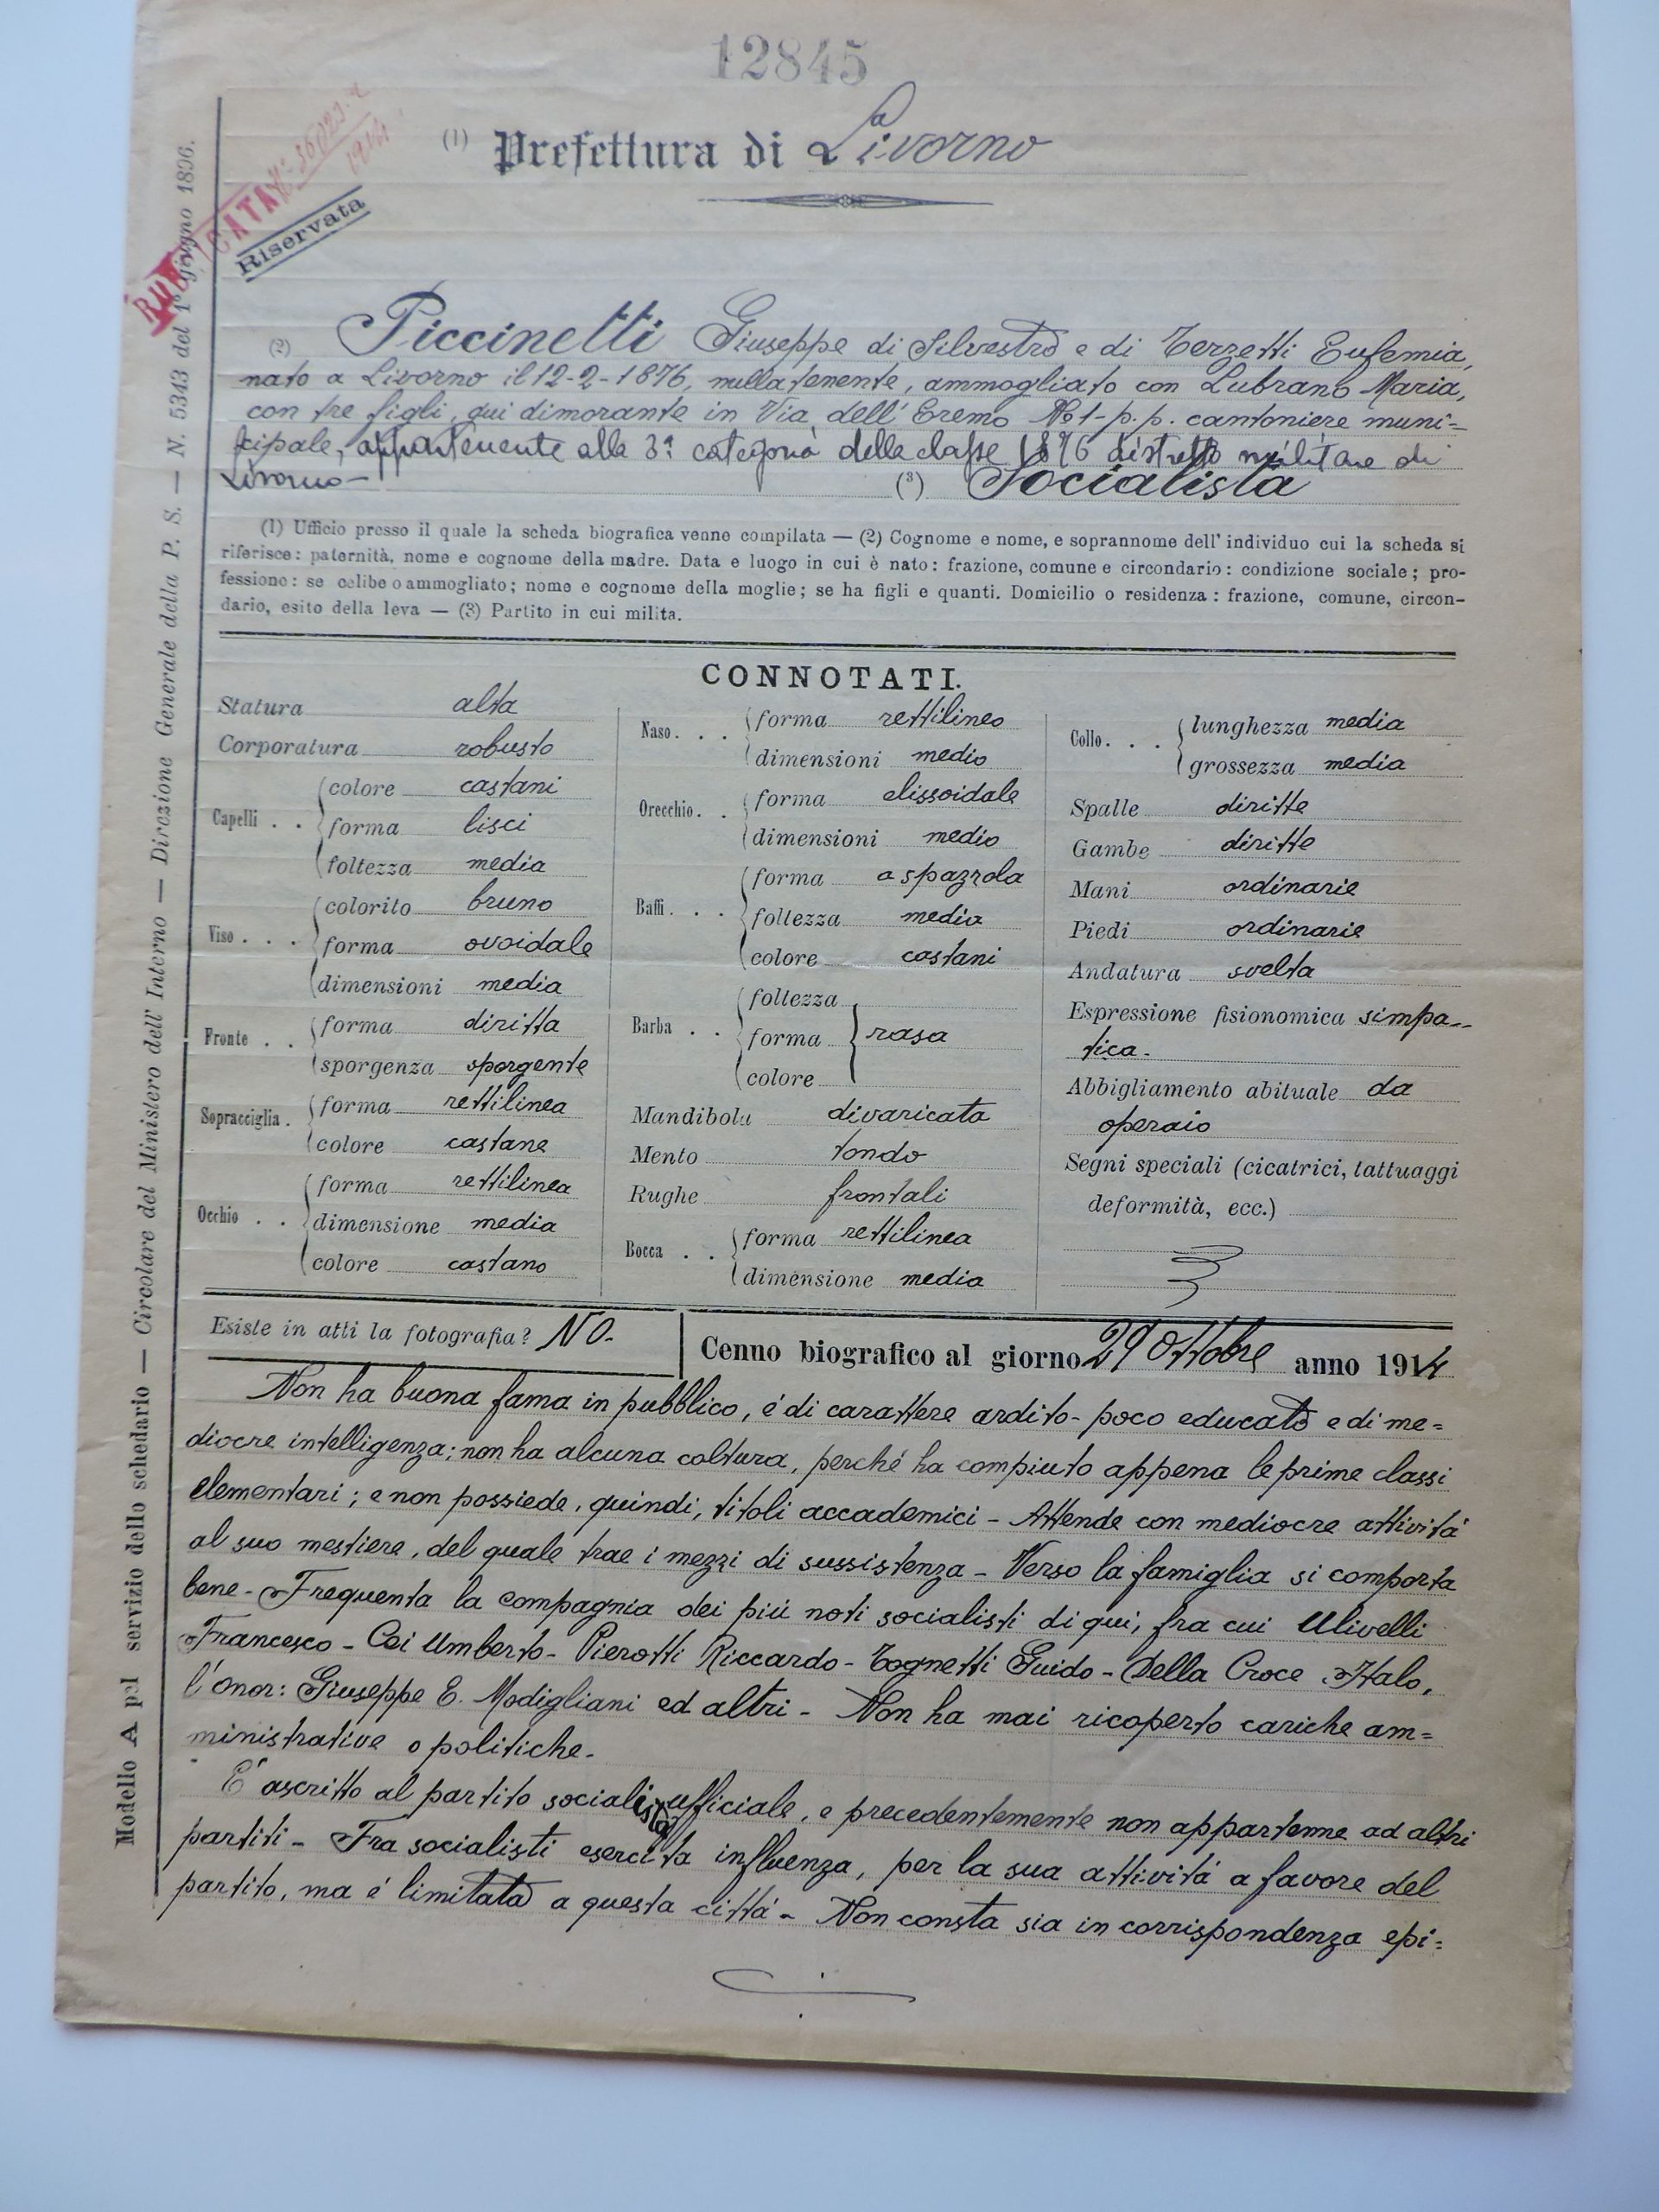 12845
(1) Prefettura di Livorno
RUBRICATA
Riservata
(2) Piccinetti Giuseppe di Silvestro e di Terzetti Eufemia,
nato a Livorno il 12-2-1876, nullatenente, ammogliato con Lubrano Maria,
con tre figli, qui dimorante in Via dell' Eremo No 1-p.p. cantoniere muni-
cipale, appartenente alla 3ª categoria della classe 1876 distretto militare di
Livorno-
(3) Socialista
(1) Ufficio presso il quale la scheda biografica venne compilata — (2) Cognome e nome, e soprannome dell' individuo cui la scheda si
riferisce: paternità, nome e cognome della madre. Data e luogo in cui è nato: frazione, comune e circondario: condizione sociale; pro-
fessione: se celibe o ammogliato; nome e cognome della moglie; se ha figli e quanti. Domicilio o residenza: frazione, comune, circon-
dario, esito della leva — (3) Partito in cui milita.
CONNOTATI.
Statura alta
Corporatura robusto
Capelli . . colore castani
forma lisci
foltezza media
Viso . . . colorito bruno
forma ovoidale
dimensioni media
Fronte . . forma diritta
sporgenza sporgente
Sopracciglia . forma rettilinea
colore castane
Occhio . . forma rettilinea
dimensione media
colore castano
Naso . . . forma rettilineo
dimensioni medio
Orecchio . . forma elissoidale
dimensioni medio
Baffi . . . forma a spazzola
foltezza media
colore castani
Barba . . foltezza
forma rasa
colore
Mandibola divaricata
Mento tondo
Rughe frontali
Bocca . . forma rettilinea
dimensione media
Collo . . . lunghezza media
grossezza media
Spalle diritte
Gambe diritte
Mani ordinarie
Piedi ordinarie
Andatura svelta
Espressione fisionomica simpa--
tica-
Abbigliamento abituale da
operaio
Segni speciali (cicatrici, tattuaggi
deformità, ecc.)
Esiste in atti la fotografia? NO-
Cenno biografico al giorno 29 Ottobre anno 1914
Non ha buona fama in pubblico, é di carattere ardito- poco educato e di me=
diocre intelligenza; non ha alcuna coltura, perché ha compiuto appena le prime classi
elementari; e non possiede, quindi, titoli accademici - Attende con mediocre attivitá
al suo mestiere, del quale trae i mezzi di sussistenza - Verso la famiglia si comporta
bene - Frequenta la compagnia dei piú noti socialisti di qui, fra cui Ulivelli
Francesco - Cei Umberto - Pierotti Riccardo - Tognetti Guido - Della Croce Italo,
l'onor: Giuseppe E. Modigliani ed altri - Non ha mai ricoperto cariche am=
ministrative o politiche-
E' ascritto al partito socialista ufficiale, e precedentemente non appartenne ad altri
partiti - Fra socialisti esercita influenza, per la sua attivitá a favore del
partito, ma é limitata a questa cittá - Non consta sia in corrispondenza epi=
Modello A pel servizio dello schedario — Circolare del Ministero dell' Interno — Direzione Generale della P. S. — N. 5343 del 1° giugno 1896.